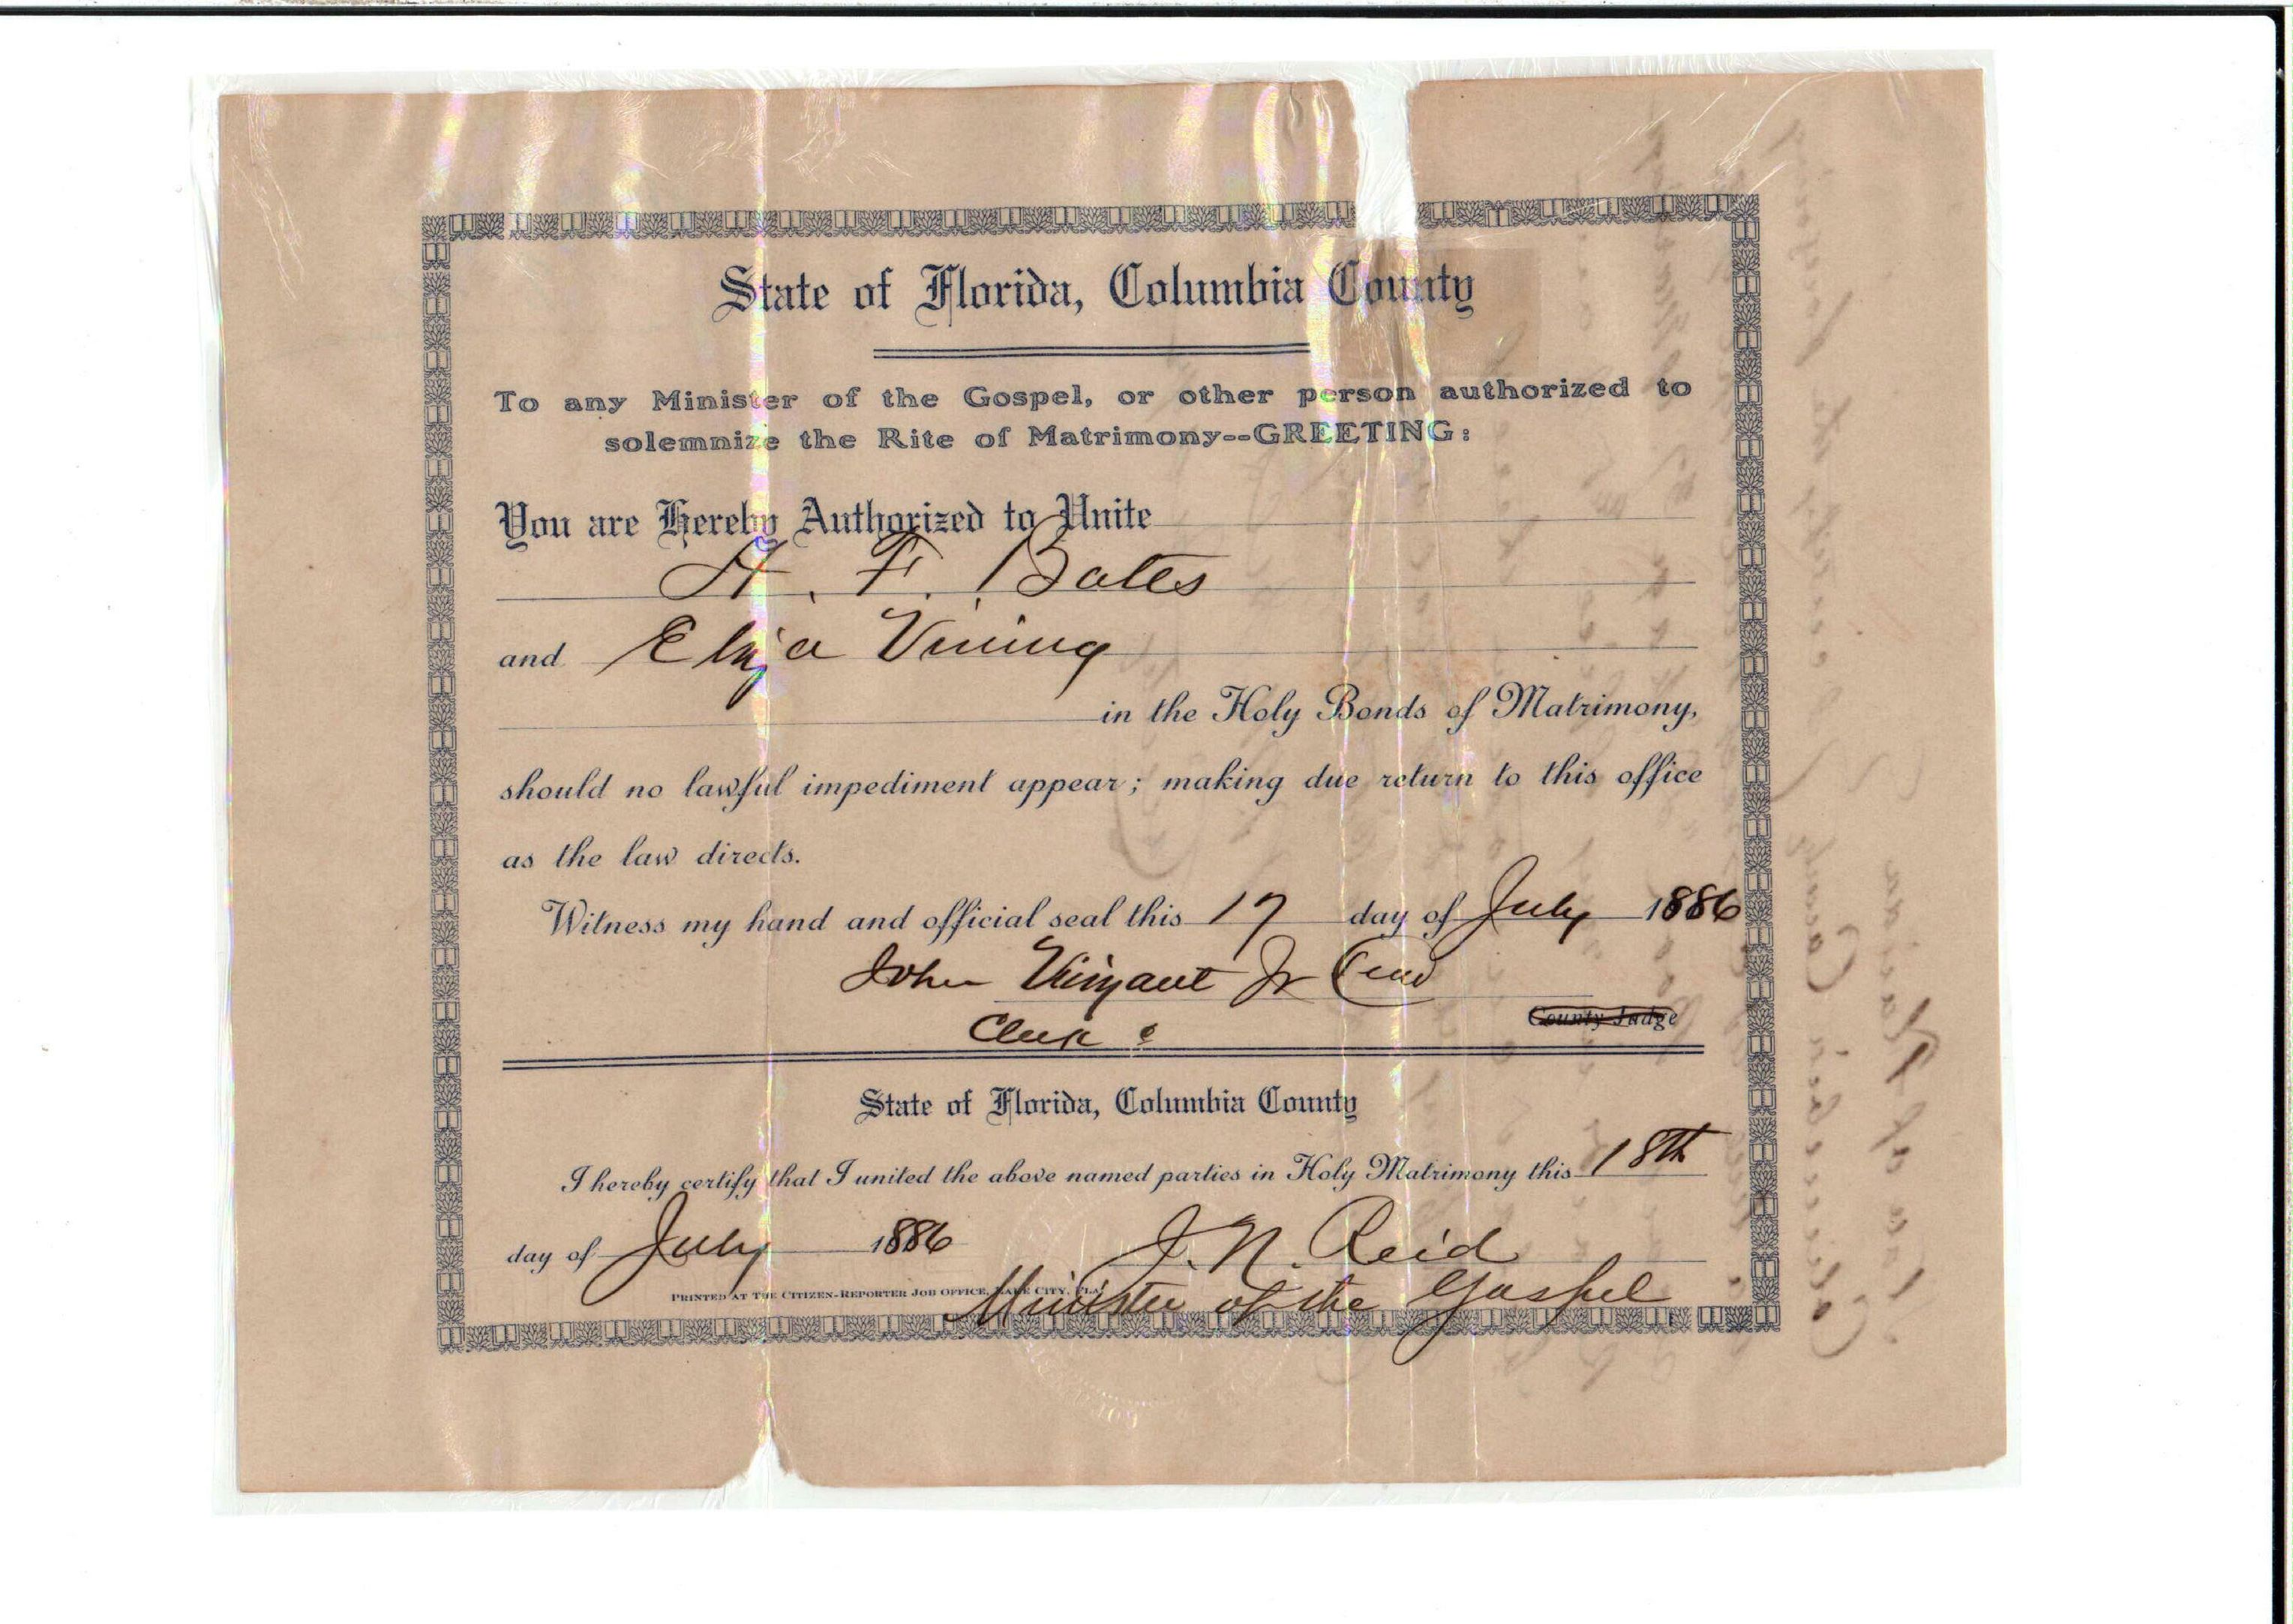 State of Florida, Columbia County
To any Minister of the Gospel, or other person authorized to
solemnize the Rite of Matrimony--GREETING:
You are Hereby Authorized to Unite
F. Bates
and Eliza Vining
in the Holy Bonds of Matrimony,
should no lawful impediment appear; making due return to this office
as the law directs.
Witness my hand and official seal this 17 day of July 1886
John Vinzant Jr
Clerk
County Judge
State of Florida, Columbia County
I hereby certify that I united the above named parties in Holy Matrimony this 18th
day of July 1886 J. N. Reid
PRINTED AT THE CITIZEN-REPORTER JOB OFFICE, LAKE CITY, FLA.
Minister of the Gospel